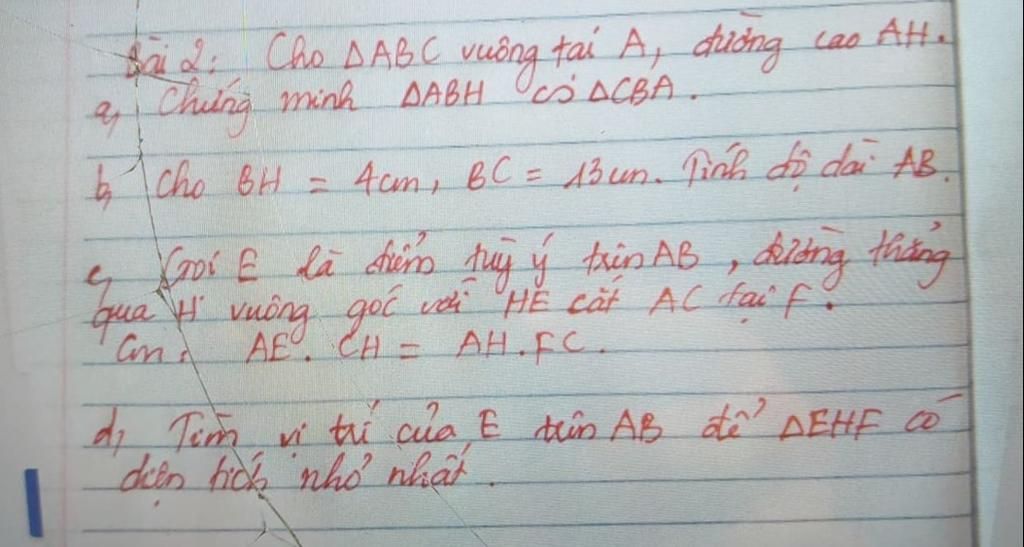 Bài 2: Cho ΔABC vuông tại A, đường cao AH.
a, Chứng minh ΔABH ∽ ΔCBA.
b, Cho BH = 4cm, BC = 13cm. Tính độ dài AB.
c, Gọi E là điểm tuỳ ý trên AB, đường thẳng
qua H vuông góc với HE cắt AC tại F.
Cm: AE. CH = AH. FC.
d, Tìm vị trí của E trên AB để ΔEHF có
diện tích nhỏ nhất.